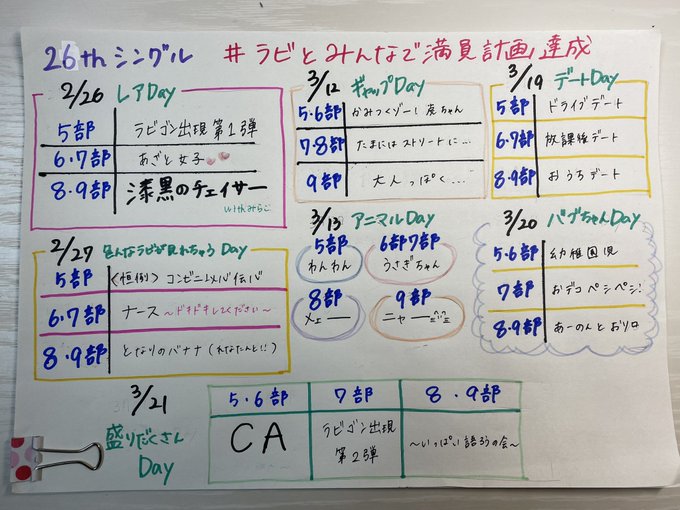 26thシングル #ラビとみんなで満員計画達成
2/26 レアDay
5部 ラビゴン出現 第1弾
6.7部 あざと女子
8.9部 漆黒のチェイサー
withみらこ
3/12 ギャップDay
5.6部 かみつくゾー! 虎ちゃん
7.8部 たまには ストリートに…
9部 大人っぽく…
3/19 デートDay
5部 ドライブデート
6.7部 放課後デート
8.9部 おうちデート
2/27 色んなラビが見れちゃう Day
5部 〈恒例〉コンビニ
6.7部 ナース 〜ドキドキしてください〜
8.9部 となりのバナナ
3/13 アニマルDay
5部 わんわん
6部7部 うさぎちゃん
8部 メェー
9部 ニャー
3/20 バブちゃんDay
5.6部 幼稚園児
7部 おデコペシペシ!
8.9部 あーのんとおりロ
3/21 盛りだくさん Day
5.6部 CA
7部 ラビゴン出現 第2弾
8.9部 〜いっぱい語ろうの会〜